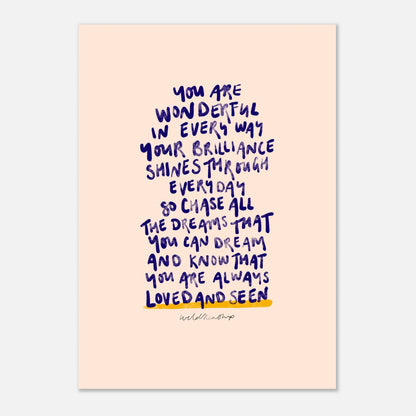 YOU ARE
WONDERFUL
IN EVERY WAY
YOUR BRILLIANCE
SHINES THROUGH
EVERYDAY
SO CHASE ALL
THE DREAMS THAT
YOU CAN DREAM
AND KNOW THAT
YOU ARE ALWAYS
LOVED AND SEEN